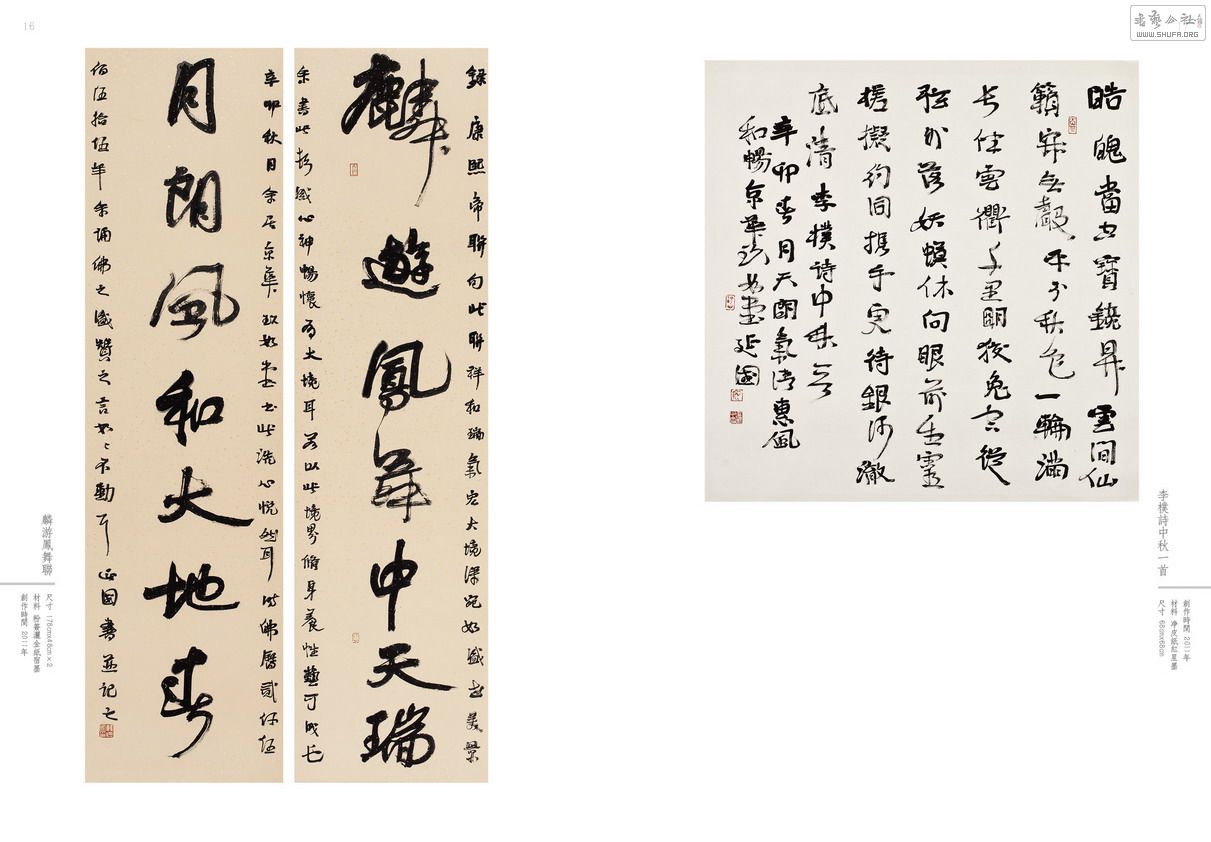 16
書藝公社
WWW.SHUFA.ORG
皓魄當空寶鏡昇雲間仙
籟寂無聲平分秋色一輪滿
長伴雲衢千里明狡兔空從
弦外落妖蟆休向眼前生靈
槎擬約同攜手更待銀河澈
底清李樸詩中秋
辛卯春月天朗氣清惠風
和暢京華
李樸詩中秋一首
創作時間 2011年
材料 净皮紙紅星墨
尺寸 68cmx68cm
錄康熙帝聯句此聯祥和瑞氣宏大境深宛如盛世美景
麟遊鳳舞中天瑞
余書此彰感心神暢懷爲大境耳若以此境界脩身養性藝可成已
辛卯秋月余居京華 書此洗心悅然耳時佛曆貳仟伍
月朗風和大地春
佰伍拾伍年余誦佛之感贊之言如如不動 國書並記之
麟游鳳舞聯
尺寸 176cmx48cm×2
材料 粉箋灑金紙宿墨
創作時間 2011年